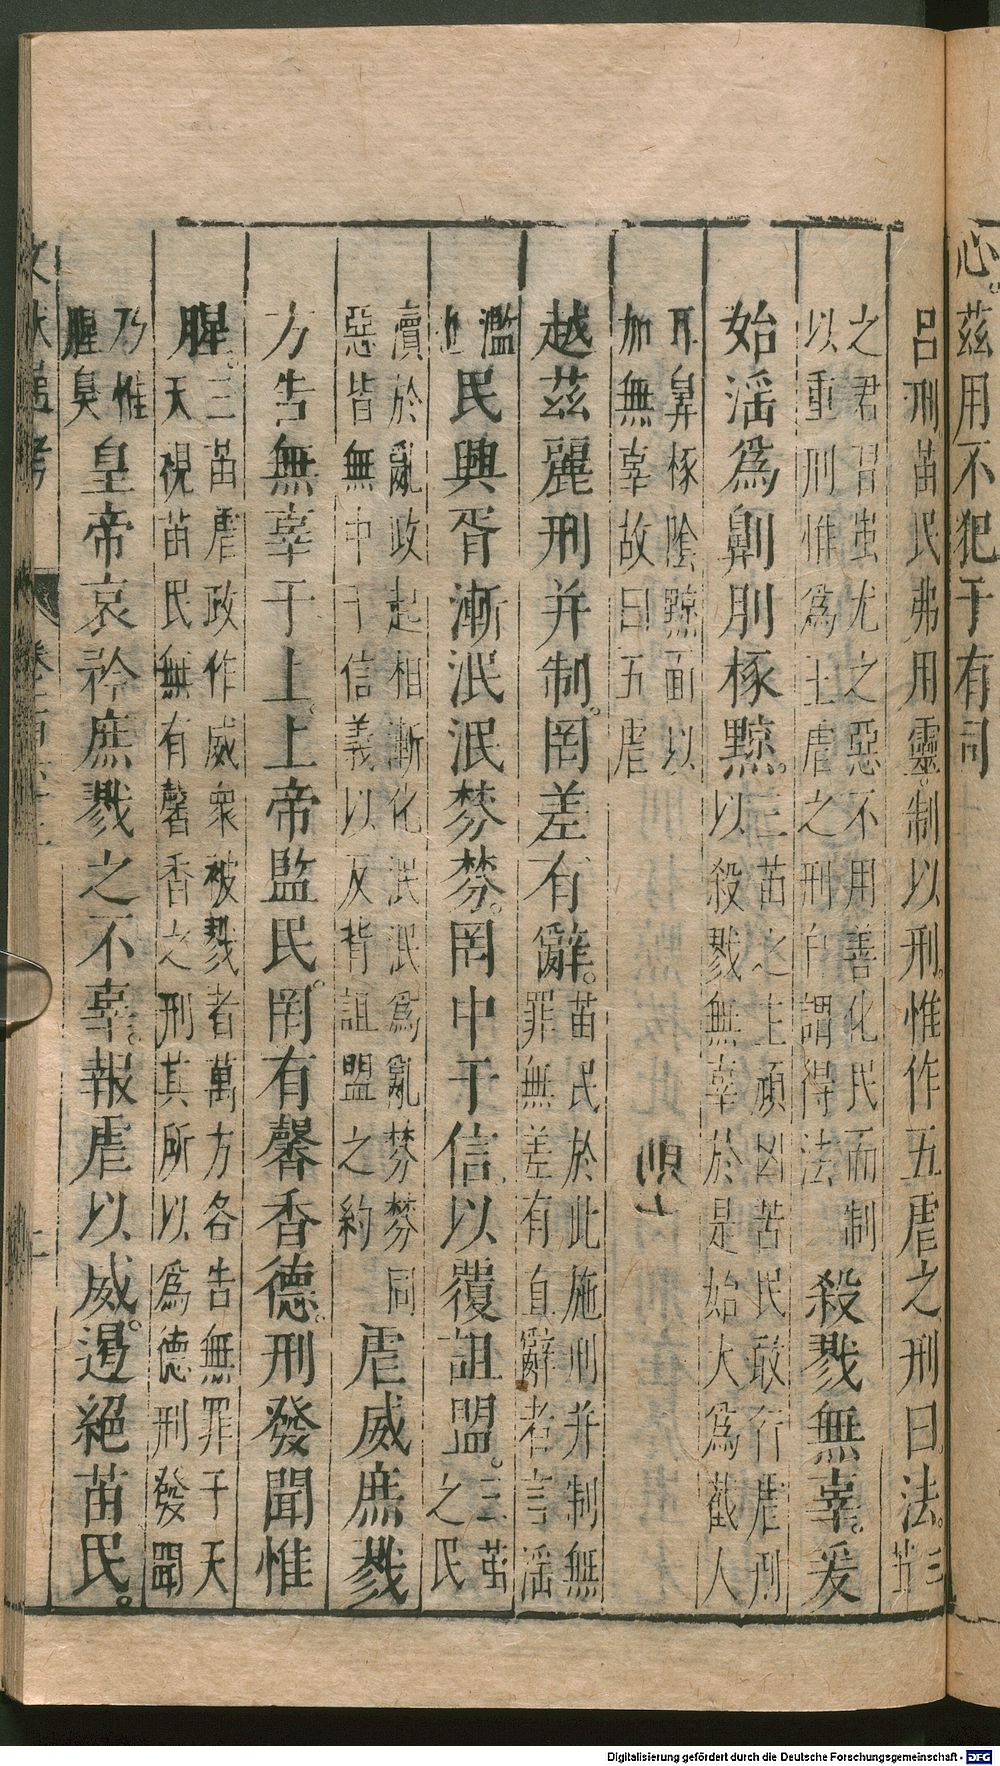 心。茲用不犯于有司
呂刑苗民弗用靈。制以刑。惟作五虐之刑曰法。三苗
之君習蚩尤之惡不用善化民而制
以重刑惟為五虐之刑自謂得法
殺戮無辜。爰
始淫為劓刵椓黥。
三苗之主頑凶苦民敢行虐刑
以殺戮無辜於是始大為截人
耳鼻椓陰黥面以
加無辜故曰五虐
越茲麗刑并制。罔差有辭。
苗民於此施刑并制無
罪無差有直辭者言淫
濫
民興胥漸泯泯棼棼。罔中于信以覆詛盟。
三苗
之民
瀆於亂政起相漸化泯泯為亂棼棼同
惡皆無中于信義以反背詛盟之約
虐威庶戮
方告無辜于上。上帝監民。罔有馨香德。刑發聞惟
腥。
三苗虐政作威衆被戮者萬方各告無罪于天
天視苗民無有馨香之刑其所以為德刑發聞
乃惟
腥臭
皇帝哀矜庶戮之不辜。報虐以威。遏絕苗民。
文獻通考
Digitalisierung gefördert durch die Deutsche Forschungsgemeinschaft - DFG